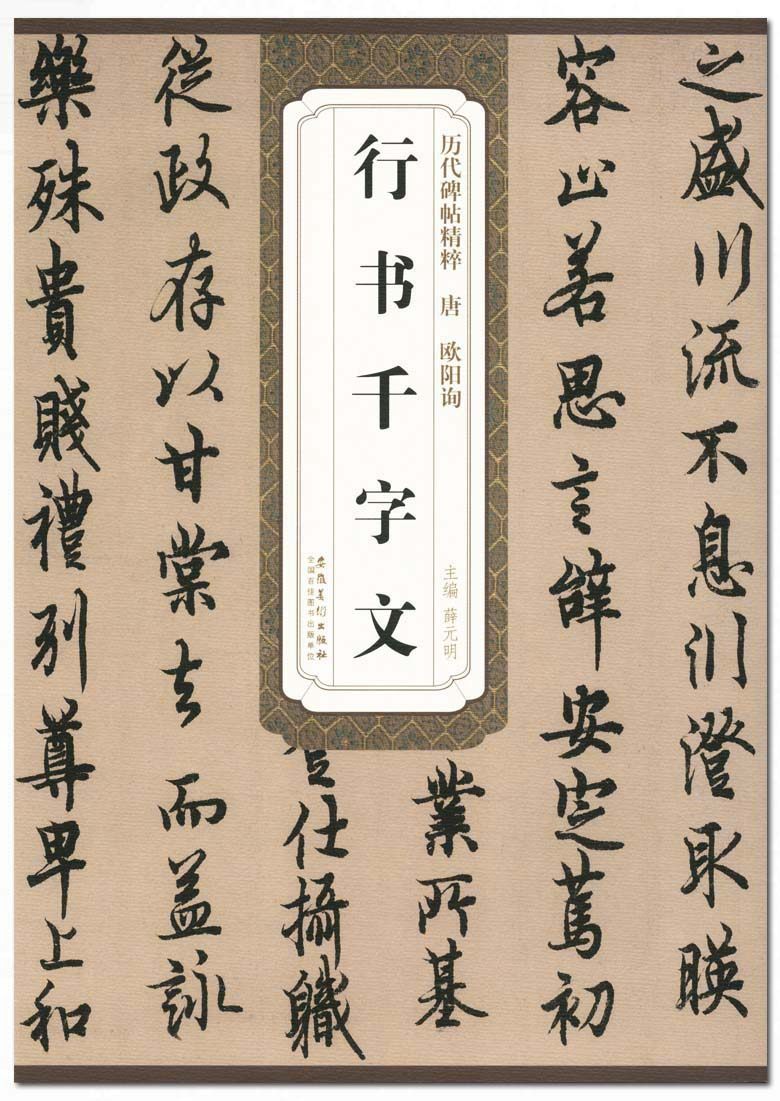 之盛川流不息川澄取暎
容止若思言辭安定篤初
業所基
登仕攝職
從政存以甘棠去而益詠
樂殊貴賤禮別尊卑上和
历代碑帖精粹 唐 欧阳询
主编 薛元明
行书千字文
安徽美术出版社
全国百佳图书出版单位